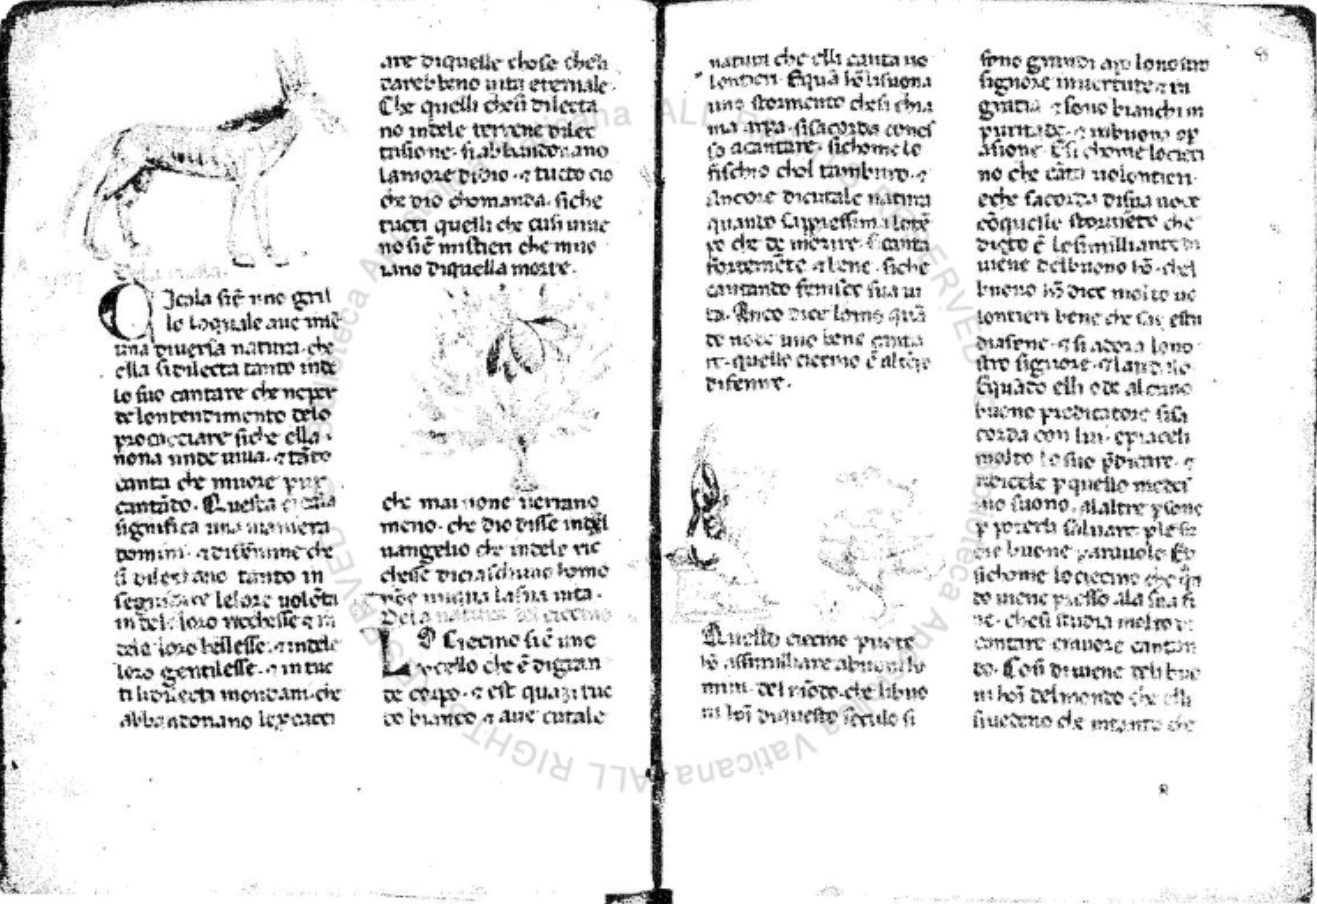 Dela cicala
Cicala sie uno gril
lo loquale aue inse
una diuersa natura. che
ella si dilecta tanto inde
lo suo cantare che neper
de lontendimento delo
procacciare siche ella.
nona unde uiua. ⁊ tāto
canta che muore pur
cantādo. Questa cicala
significa una maniera
domini. ⁊ di femine che
si dilectano tanto in
seguitare leloro uolōta
in dele loro ricchesse ⁊ in
dele loro bellesse. ⁊ indele
loro gentilesse. ⁊ in tuc
ti li dilecti mondani. che
abbandonano le
are diquelle chose cheli
darebbeno uita eternale.
Che quelli chesi dilecta
no indele terrene dilec
tasione. si abbandonano
lamore didio. ⁊ tucto cio
che dio chomanda. siche
tucti quelli che cusi uiue
no siē mistieri che muo
iano diquella morte.
che mai none uerrano
meno. che dio disse indel
uangelio che indele ric
chesse diciaschuno homo
nōe miqua la sua uita.
Dela natura del cieceno
LO Cieceno siē uno
ucello che ē digran
de corpo. ⁊ est quazi tuc
to bianco ⁊ aue cutale
natura che elli canta uo
lontieri. Equā hō li suona
uno stormento chesi chia
ma arpa. sisacorda cones
so acantare. sichome lo
fischio chol tamburo. ⁊
Ancore dicutale natura
quando sapressima lotē
po che de morire. si canta
fortemēte ⁊ bene. siche
cantando fenisce sua ui
ta. Anco dice lomo quā
de uno bene canta
re. quello cieceno ē
difenire.
Quello cieceno puote
hō assimilliare abuoni ho
mini. del mōdo. che libuo
ni hoī diquesto seculo si
sono grandi apo lonostro
signore inuertute ⁊ in
gratia. ⁊ sono bianchi in
puritade. ⁊ inbuona op
asione. Esi chome lociece
no che cāta uolontieri.
eche sacorda disua uoce
cōquelle stormēto che
dicto ē lesimilliante di
uiene delbuono hō. chel
buono hō dice molto uo
lontieri bene che
⁊ si adora lono
stro signore. ⁊ laudalo.
Equādo elli ode alcuno
buono predicatore sisa
corda con lui. epiaceli
molto lo suo p̄dicare. ⁊
ridicele p quello medes
mo suono. alaltre psone
p poterli saluare. ple su
oie buone parauole. Et
sichome lociecino che qn̄
do uiene presso ala sua fi
ne. chesi studia molto di
cantare emuore cantan
do. Cosi diuiene deli buo
ni hoī delmondo che elli
siuedeno che intanto che